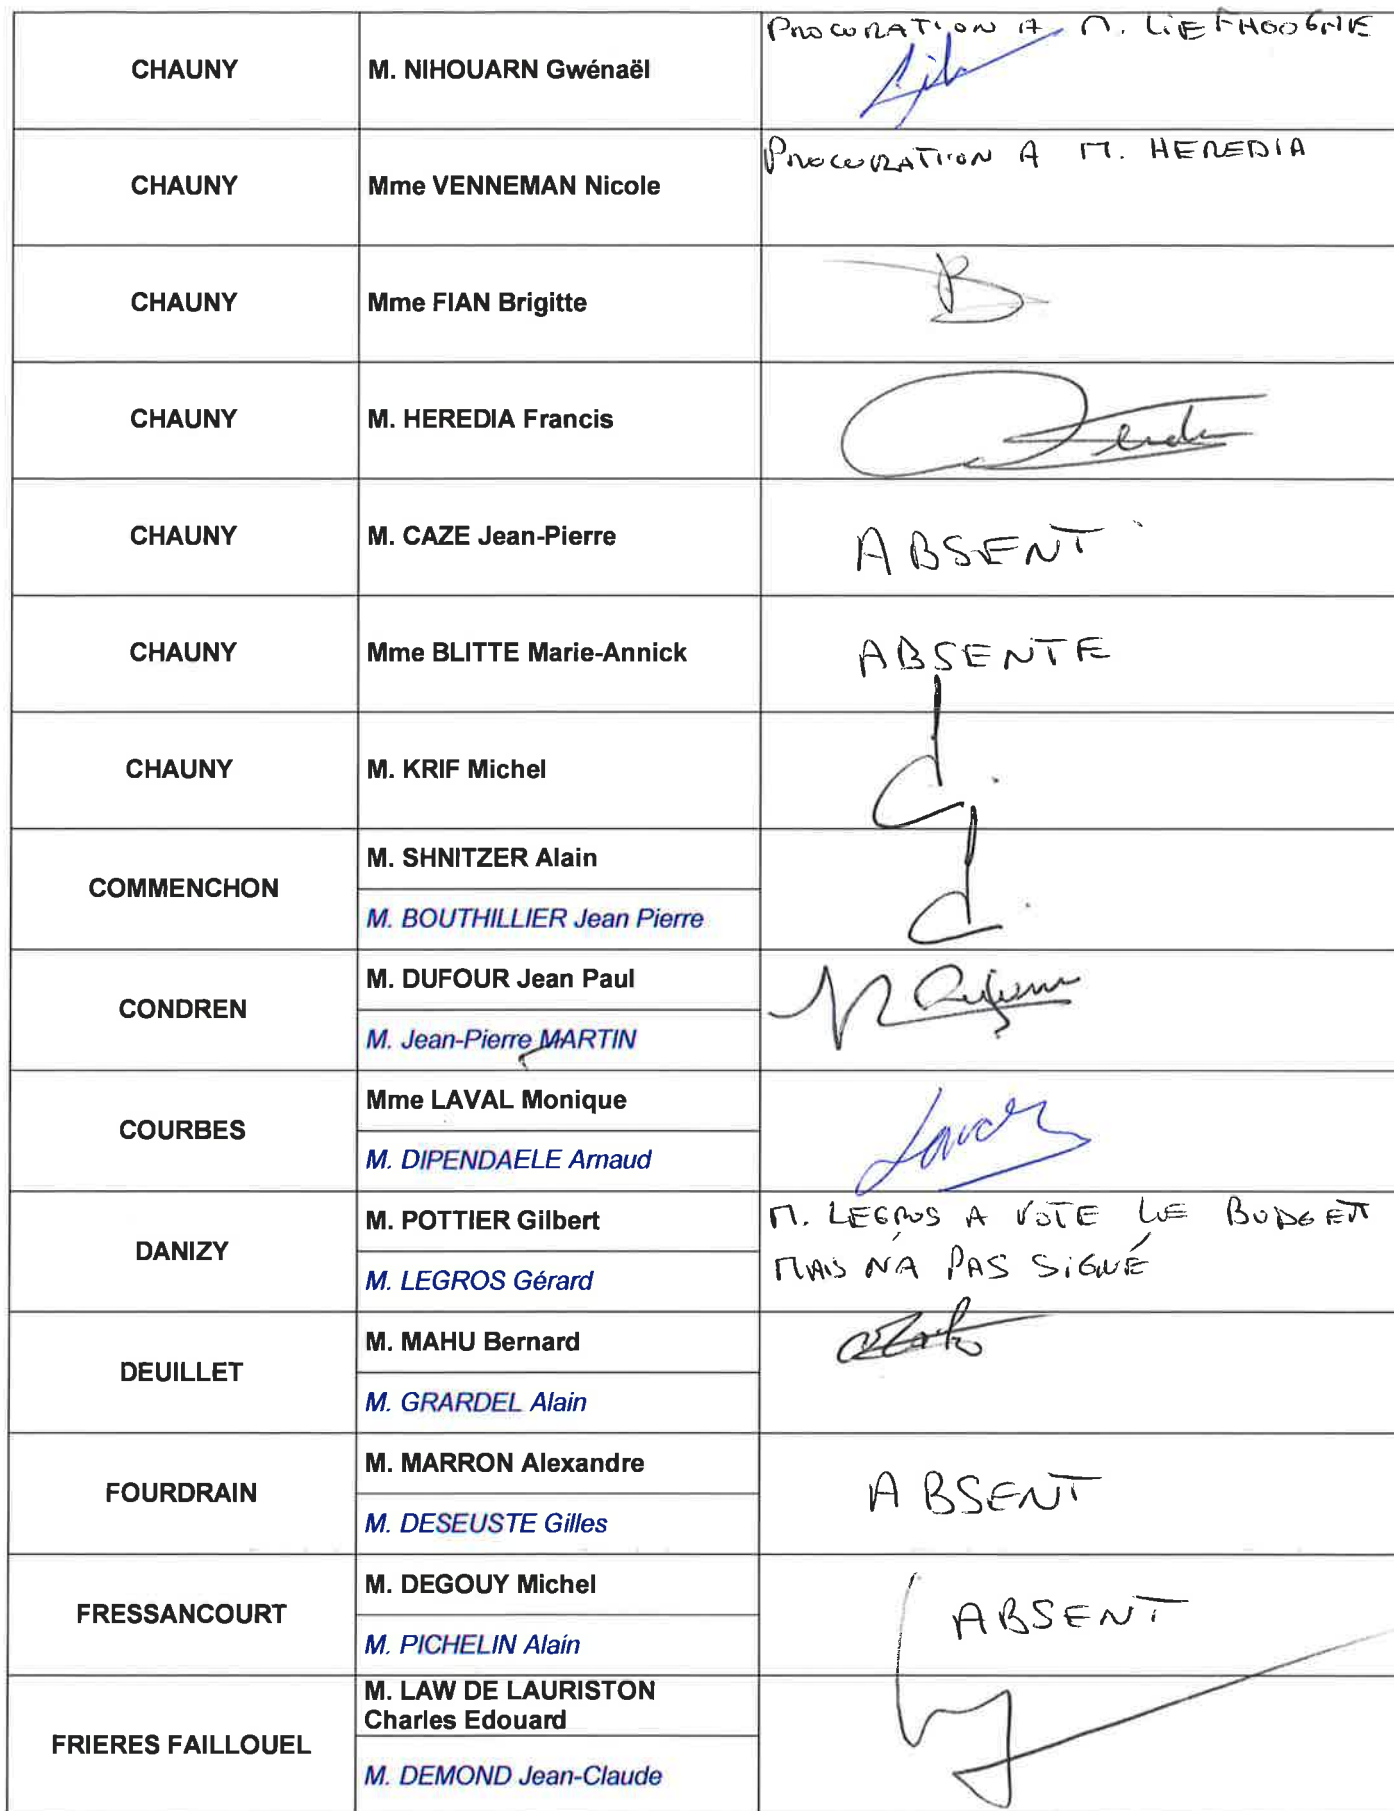 CHAUNY
M. NIHOUARN Gwénaël
PROCURATION A M. LIEFHOOGHE
CHAUNY
Mme VENNEMAN Nicole
PROCURATION A M. HEREDIA
CHAUNY
Mme FIAN Brigitte
CHAUNY
M. HEREDIA Francis
CHAUNY
M. CAZE Jean-Pierre
ABSENT
CHAUNY
Mme BLITTE Marie-Annick
ABSENTE
CHAUNY
M. KRIF Michel
COMMENCHON
M. SHNITZER Alain
M. BOUTHILLIER Jean Pierre
CONDREN
M. DUFOUR Jean Paul
M. Jean-Pierre MARTIN
COURBES
Mme LAVAL Monique
M. DIPENDAELE Arnaud
DANIZY
M. POTTIER Gilbert
M. LEGROS Gérard
M. LEGROS A VOTE LE BUDGET
MAIS N'A PAS SIGNÉ
DEUILLET
M. MAHU Bernard
M. GRARDEL Alain
FOURDRAIN
M. MARRON Alexandre
M. DESEUSTE Gilles
ABSENT
FRESSANCOURT
M. DEGOUY Michel
M. PICHELIN Alain
ABSENT
FRIERES FAILLOUEL
M. LAW DE LAURISTON
Charles Edouard
M. DEMOND Jean-Claude